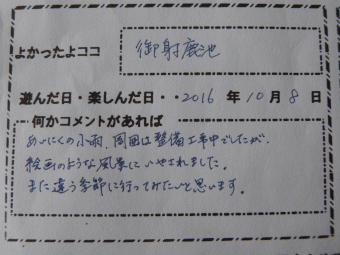 よかったよココ 御射鹿池
遊んだ日・楽しんだ日・・2016 年 10 月 8 日
何かコメントがあれば
あいにくの小雨、周囲は整備工事中でしたが、
絵画のような風景にいやされました。
また違う季節に行ってみたいと思います。